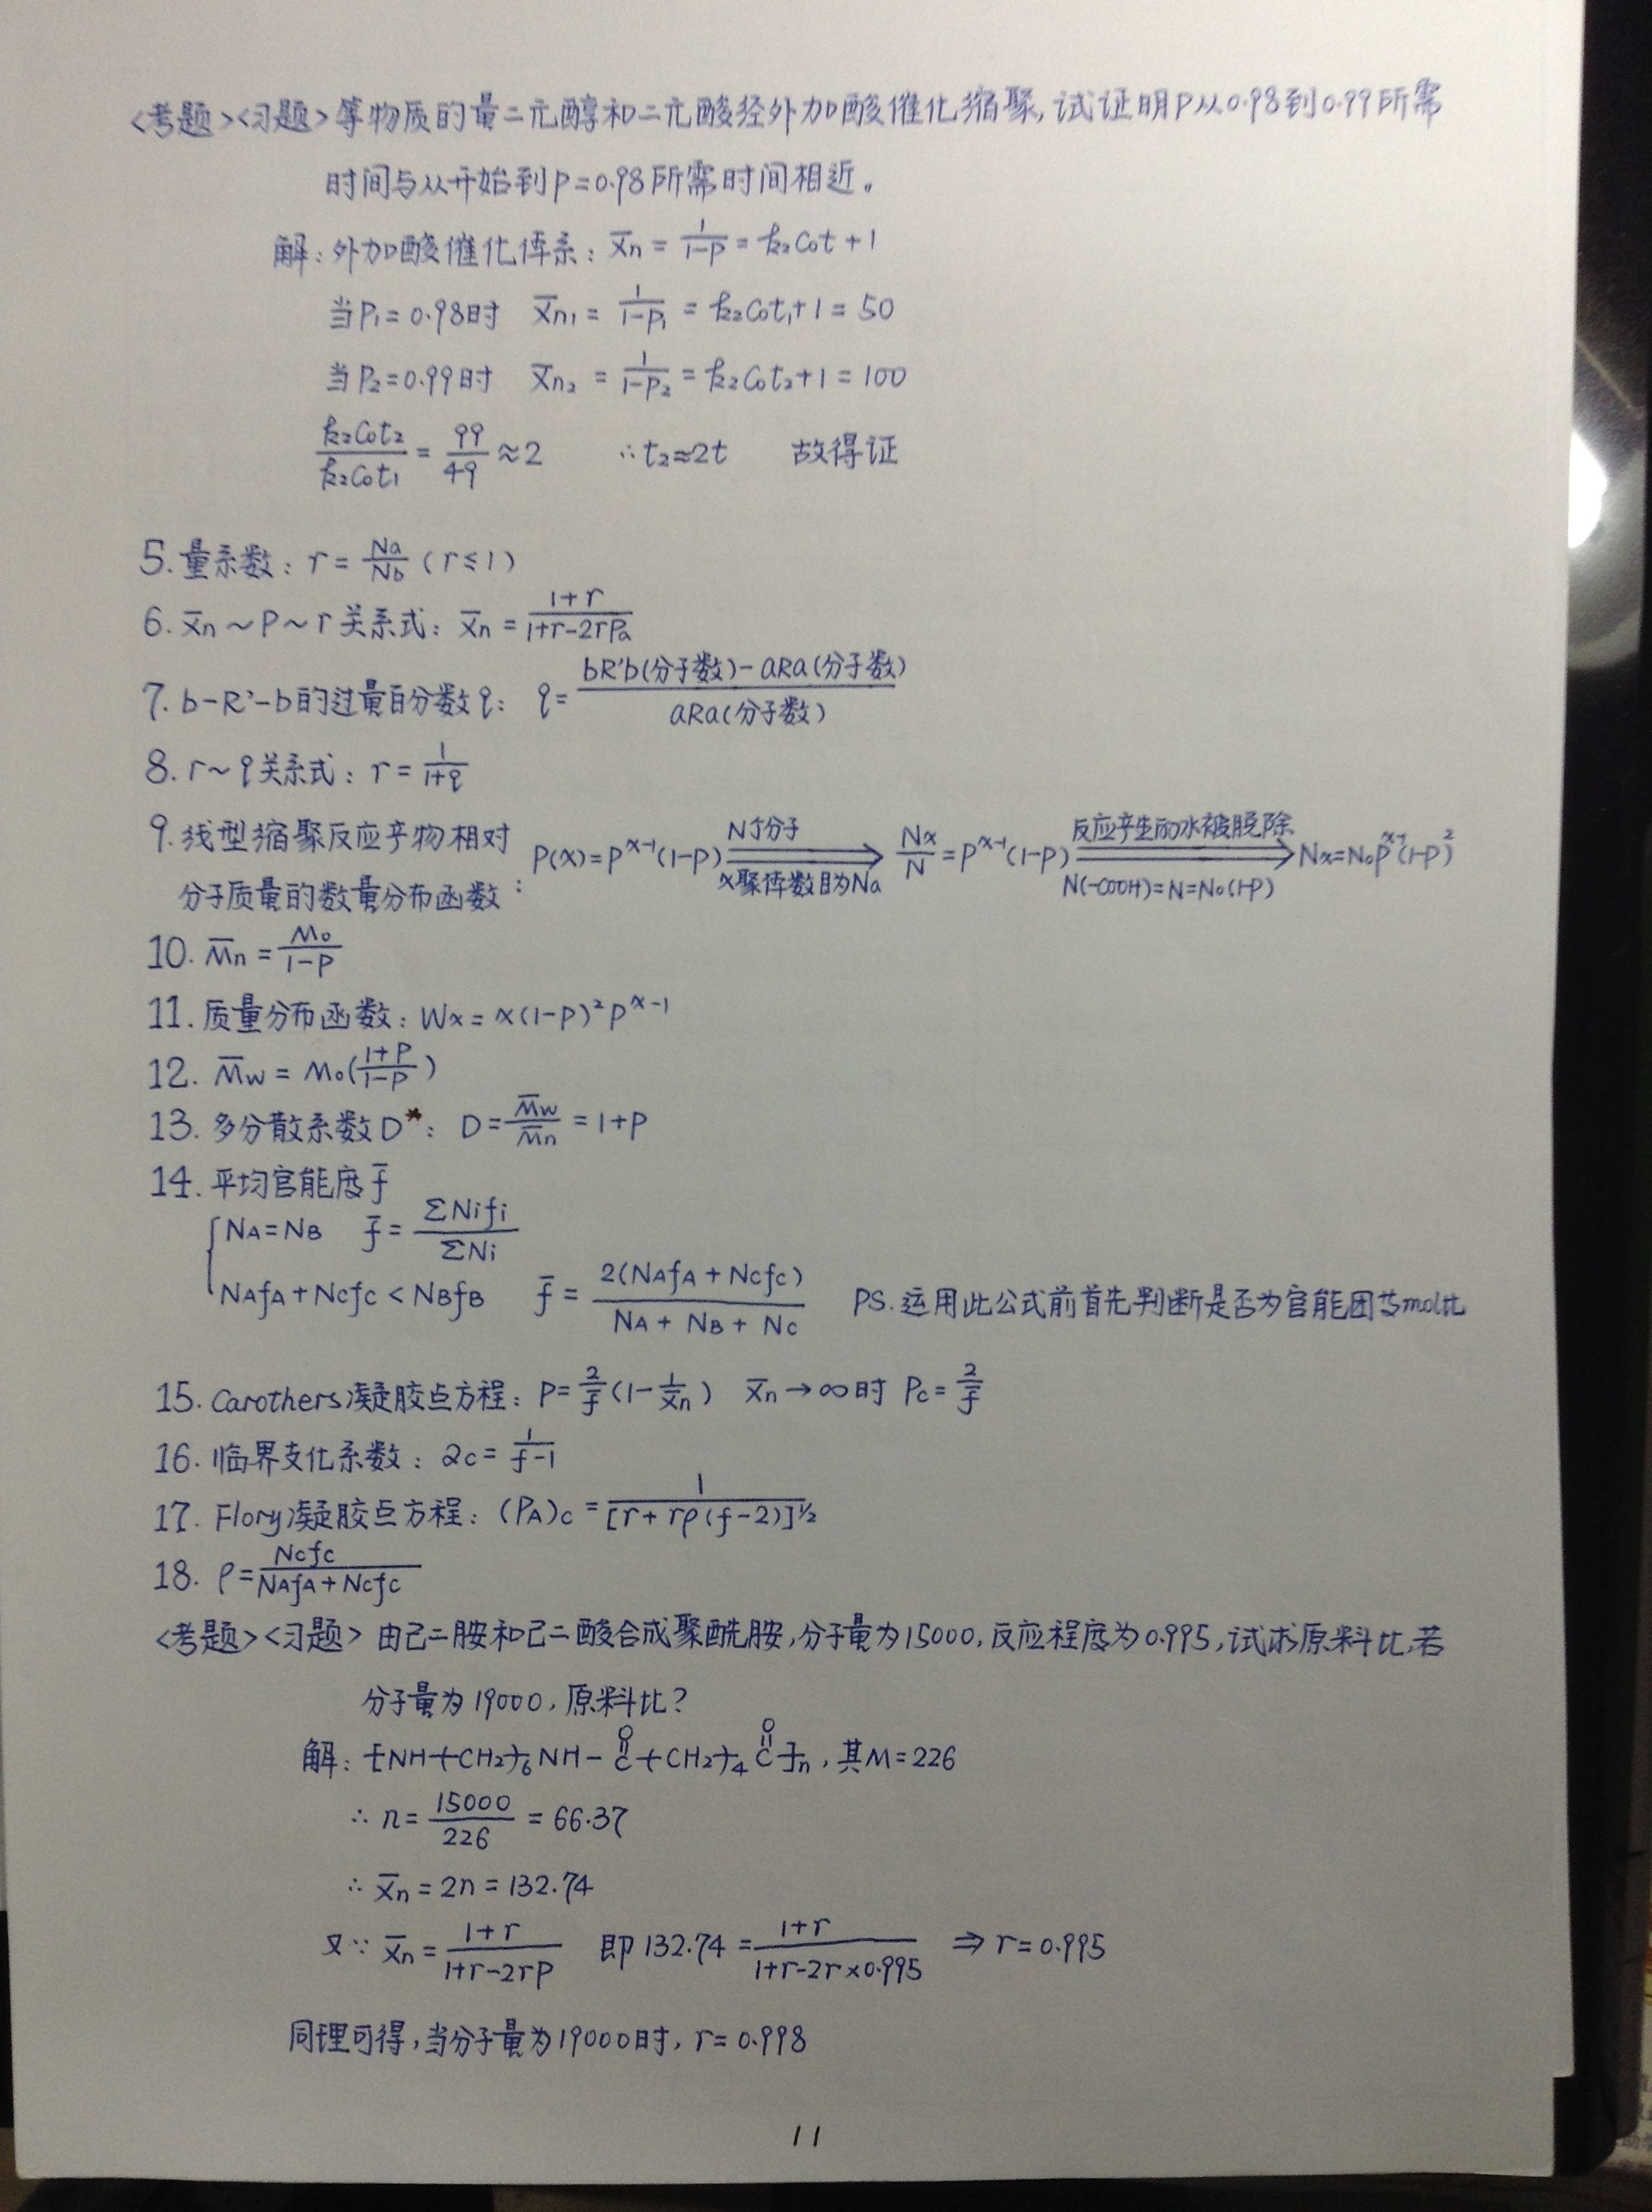 <考题><习题>等物质的量二元醇和二元酸经外加酸催化缩聚,试证明P从0.98到0.99所需
时间与从开始到P=0.98所需时间相近。
解:外加酸催化体系: X̄n = 1/(1-P) = k₂C₀t + 1
当P₁=0.98时 X̄n₁ = 1/(1-P₁) = k₂C₀t₁+1 = 50
当P₂=0.99时 X̄n₂ = 1/(1-P₂) = k₂C₀t₂+1 = 100
k₂C₀t₂/k₂C₀t₁ = 99/49 ≈ 2 ∴t₂≈2t 故得证
5. 量系数: r = Na/Nb (r≤1)
6. X̄n~P~r关系式: X̄n = (1+r)/(1+r-2rPa)
7. b-R'-b的过量百分数q: q = (bR'b(分子数)-aRa(分子数))/(aRa(分子数))
8. r~q关系式: r = 1/(1+q)
9. 线型缩聚反应产物相对
分子质量的数量分布函数: P(x)=P^(x-1)(1-P) ⟹(N个分子 x聚体数目为Na) Nx/N = P^(x-1)(1-P) ⟹(反应产生的水被脱除 N(-COOH)=N=N₀(1-P)) Nx=N₀P^(x-1)(1-P)²
10. M̄n = M₀/(1-P)
11. 质量分布函数: Wx = x(1-P)²P^(x-1)
12. M̄w = M₀((1+P)/(1-P))
13. 多分散系数D*: D = M̄w/M̄n = 1+P
14. 平均官能度f̄
{NA=NB f̄ = ΣNifi/ΣNi
NAfA+NCfC < NBfB f̄ = 2(NAfA+NCfC)/(NA+NB+NC) PS.运用此公式前首先判断是否为官能团等mol比
15. Carothers凝胶点方程: P = 2/f̄(1-1/X̄n) X̄n→∞时 Pc = 2/f̄
16. 临界支化系数: αc = 1/(f-1)
17. Flory凝胶点方程: (PA)c = 1/[r+rρ(f-2)]^½
18. ρ = NCfC/(NAfA+NCfC)
<考题><习题> 由己二胺和己二酸合成聚酰胺,分子量为15000,反应程度为0.995,试求原料比,若
分子量为19000,原料比?
解: -[NH-(CH₂)₆NH-C(=O)-(CH₂)₄C(=O)]n, 其M=226
∴ n = 15000/226 = 66.37
∴ X̄n = 2n = 132.74
又∵ X̄n = (1+r)/(1+r-2rP) 即 132.74 = (1+r)/(1+r-2r×0.995) ⇒ r=0.995
同理可得,当分子量为19000时, r=0.998
11